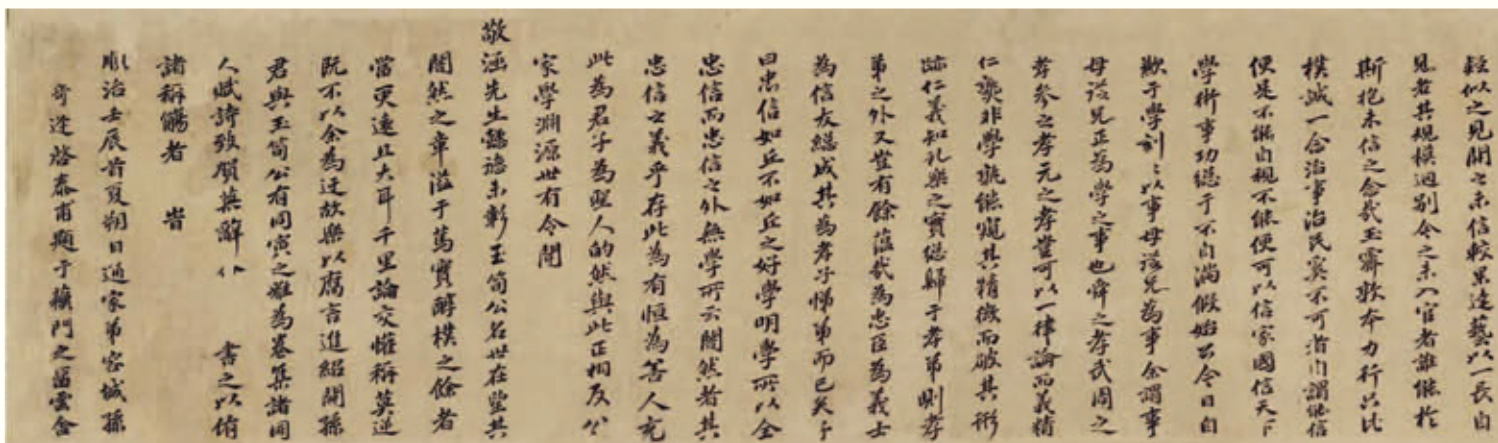 類似之見開之未信較果達藝以一長自
見者其規模迥別令之未入官者誰能於
斯抱未信之念哉玉霽敦本力行只此
樸誠一念治事治民奚不可者自謂能信
便是不能自視不能便可以信家國信天下
學術事功總于不自滿假始公令日自
歉于學訓訓以事母諮兄為事余謂事
母諮兄正為學之事也舜之孝武周之
孝參之孝元之孝豈可以一律論而義精
仁熟非學孰能窺其精微而破其術
跡仁義知禮樂之實總歸于孝弟則孝
弟之外又豈有餘蘊哉為忠臣為義士
為信友總成其為孝子悌弟而已矣子
曰忠信如丘不如丘之好學明學所以全
忠信而忠信之外無學所云闇然者其
忠信之義乎存此為有恒為善人充
此為君子為聖人的然與此正相反公
家學淵源世有令聞
敬涵先生懿德未彰玉筍公名世在望其
闇然之章溢于篤實醇樸之餘者
當更遠且大耳千里論交惟稱莫逆
既不以余為迂故樂以腐言進紹聞孫
君與玉筍公有同寅之雅為卷集諸同
人賦詩致頌並辭 書之以侑
諸稱觴者 旹
順治壬辰首夏朔日通家弟容城孫
奇逢啓泰甫題于蘇門之留雲舍